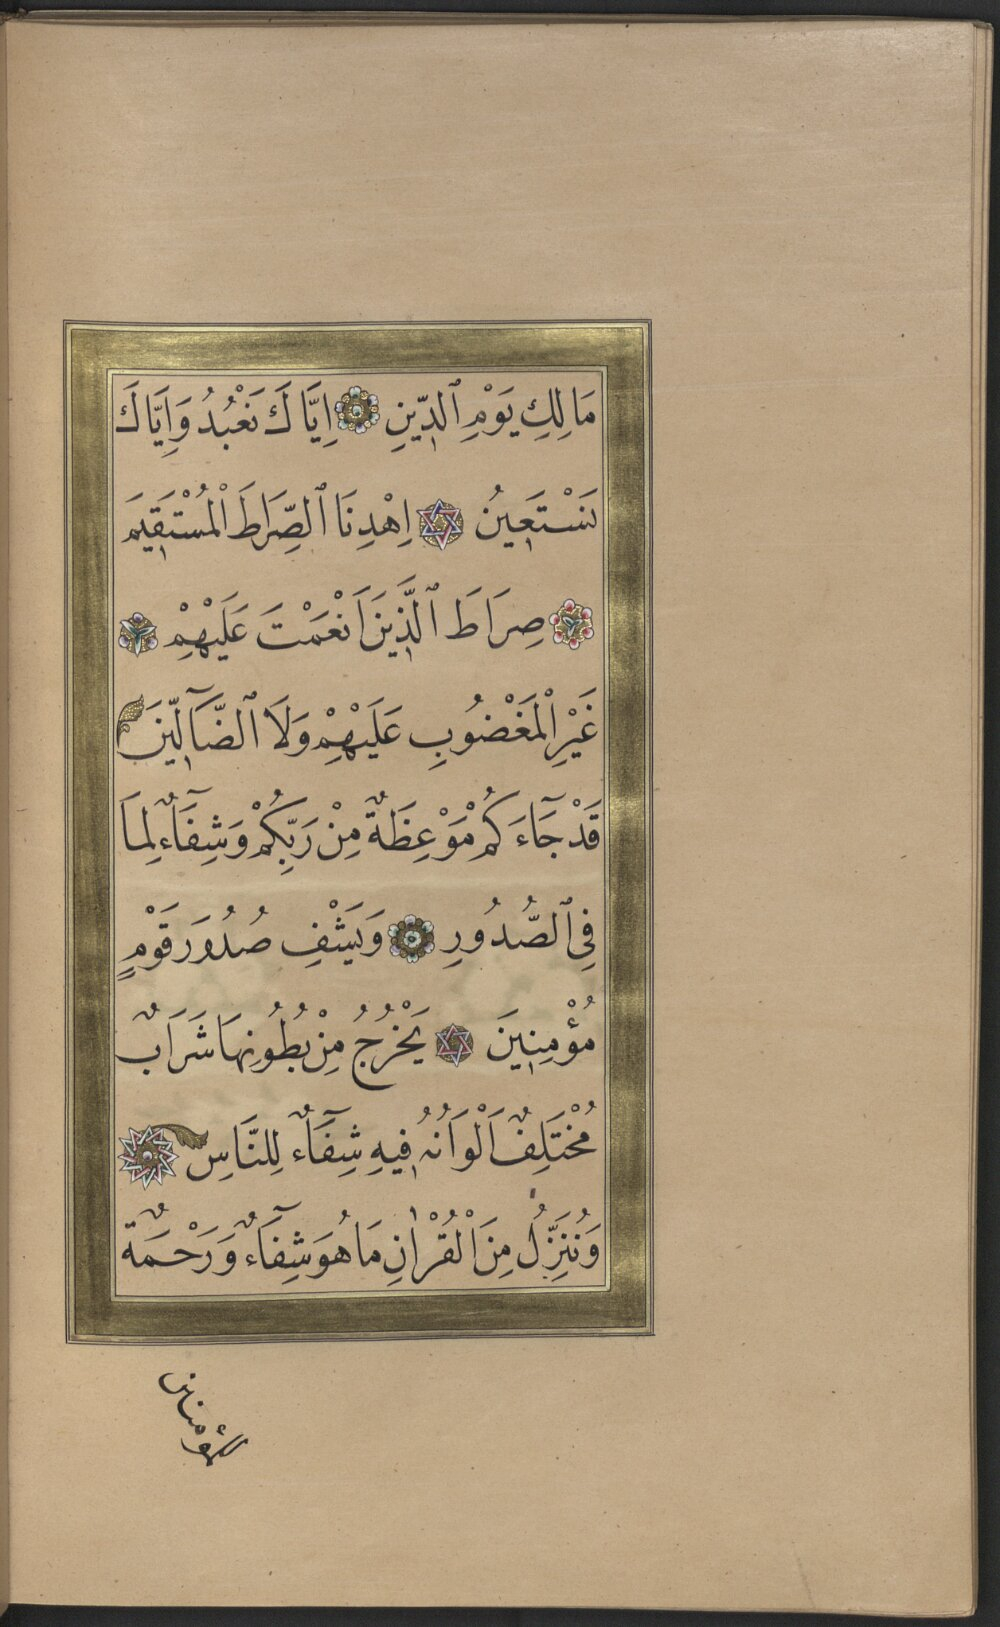 مَالِكِ يَوْمِ ٱلدِّينِ اِيَّاكَ نَعْبُدُ وَاِيَّاكَ
نَسْتَعِينُ اِهْدِنَا ٱلصِّرَاطَ ٱلْمُسْتَقِيمَ
صِرَاطَ ٱلَّذِينَ اَنْعَمْتَ عَلَيْهِمْ
غَيْرِ ٱلْمَغْضُوبِ عَلَيْهِمْ وَلَا ٱلضَّآلِّينَ
قَدْ جَآءَكُمْ مَوْعِظَةٌ مِنْ رَبِّكُمْ وَشِفَآءٌ لِمَا
فِى ٱلصُّدُورِ وَيَشْفِ صُدُورَ قَوْمٍ
مُؤْمِنِينَ يَخْرُجُ مِنْ بُطُونِهَا شَرَابٌ
مُخْتَلِفٌ اَلْوَانُهُ فِيهِ شِفَآءٌ لِلنَّاسِ
وَنُنَزِّلُ مِنَ ٱلْقُرْاٰنِ مَا هُوَ شِفَآءٌ وَرَحْمَةٌ
للمؤمنين